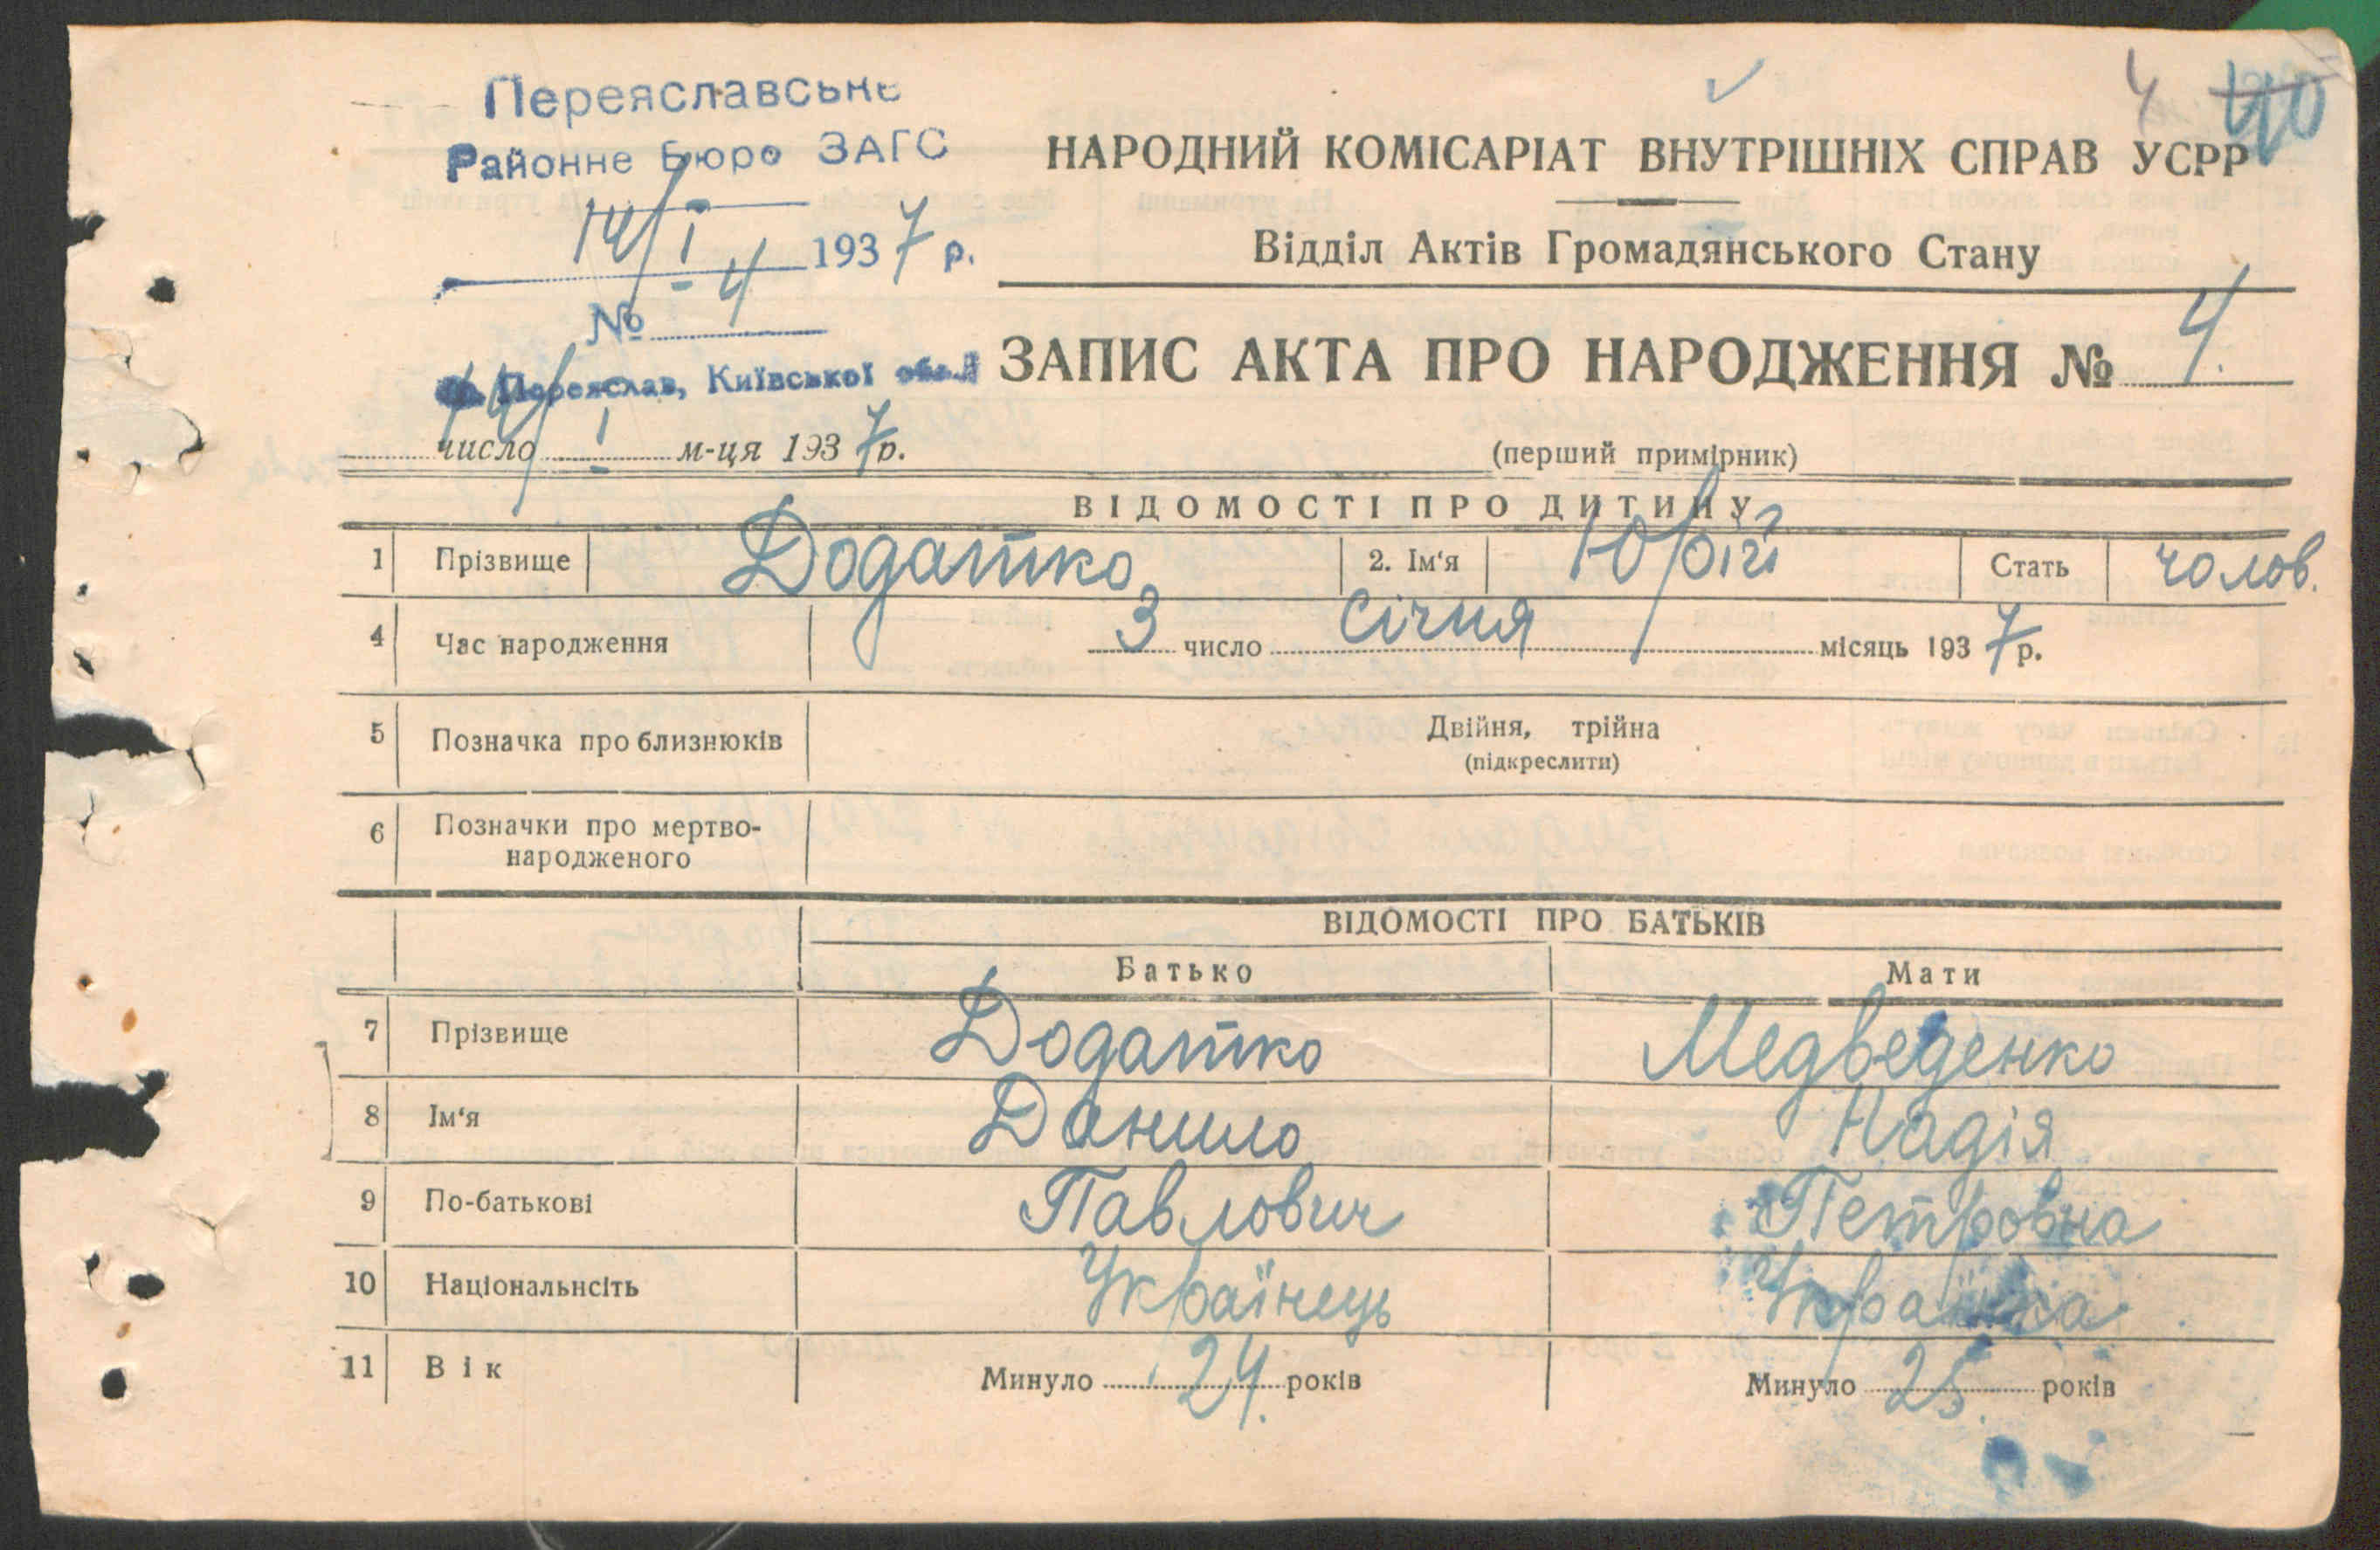 4 40
Переяславське
Районне Бюро ЗАГС
14/I 1937 р.
№ 4
Переяслав, Київської обл.
14/I число м-ця 1937р.
НАРОДНИЙ КОМІСАРІАТ ВНУТРІШНІХ СПРАВ УСРР
Відділ Актів Громадянського Стану
ЗАПИС АКТА ПРО НАРОДЖЕННЯ № 4.
(перший примірник)
ВІДОМОСТІ ПРО ДИТИНУ
1 Прізвище Додатко 2. Ім'я Юрій Стать чолов.
4 Час народження 3 число січня місяць 1937р.
5 Позначка про близнюків Двійня, трійна
(підкреслити)
6 Позначки про мертво-
народженого
ВІДОМОСТІ ПРО БАТЬКІВ
Батько Мати
7 Прізвище Додатко Медведенко
8 Ім'я Данило Надія
9 По-батькові Павлович Петровна
10 Національнсіть Українець Українка
11 Вік Минуло 24. років Минуло 25. років